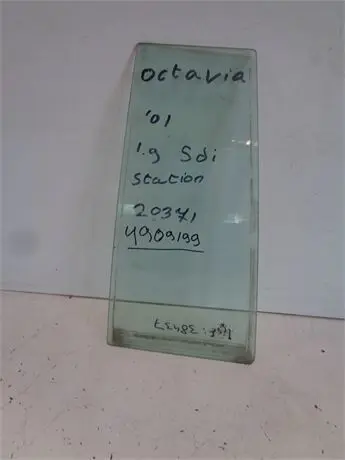 octavia
'01
1.9 Sdi
Station
20371
4909199
38437